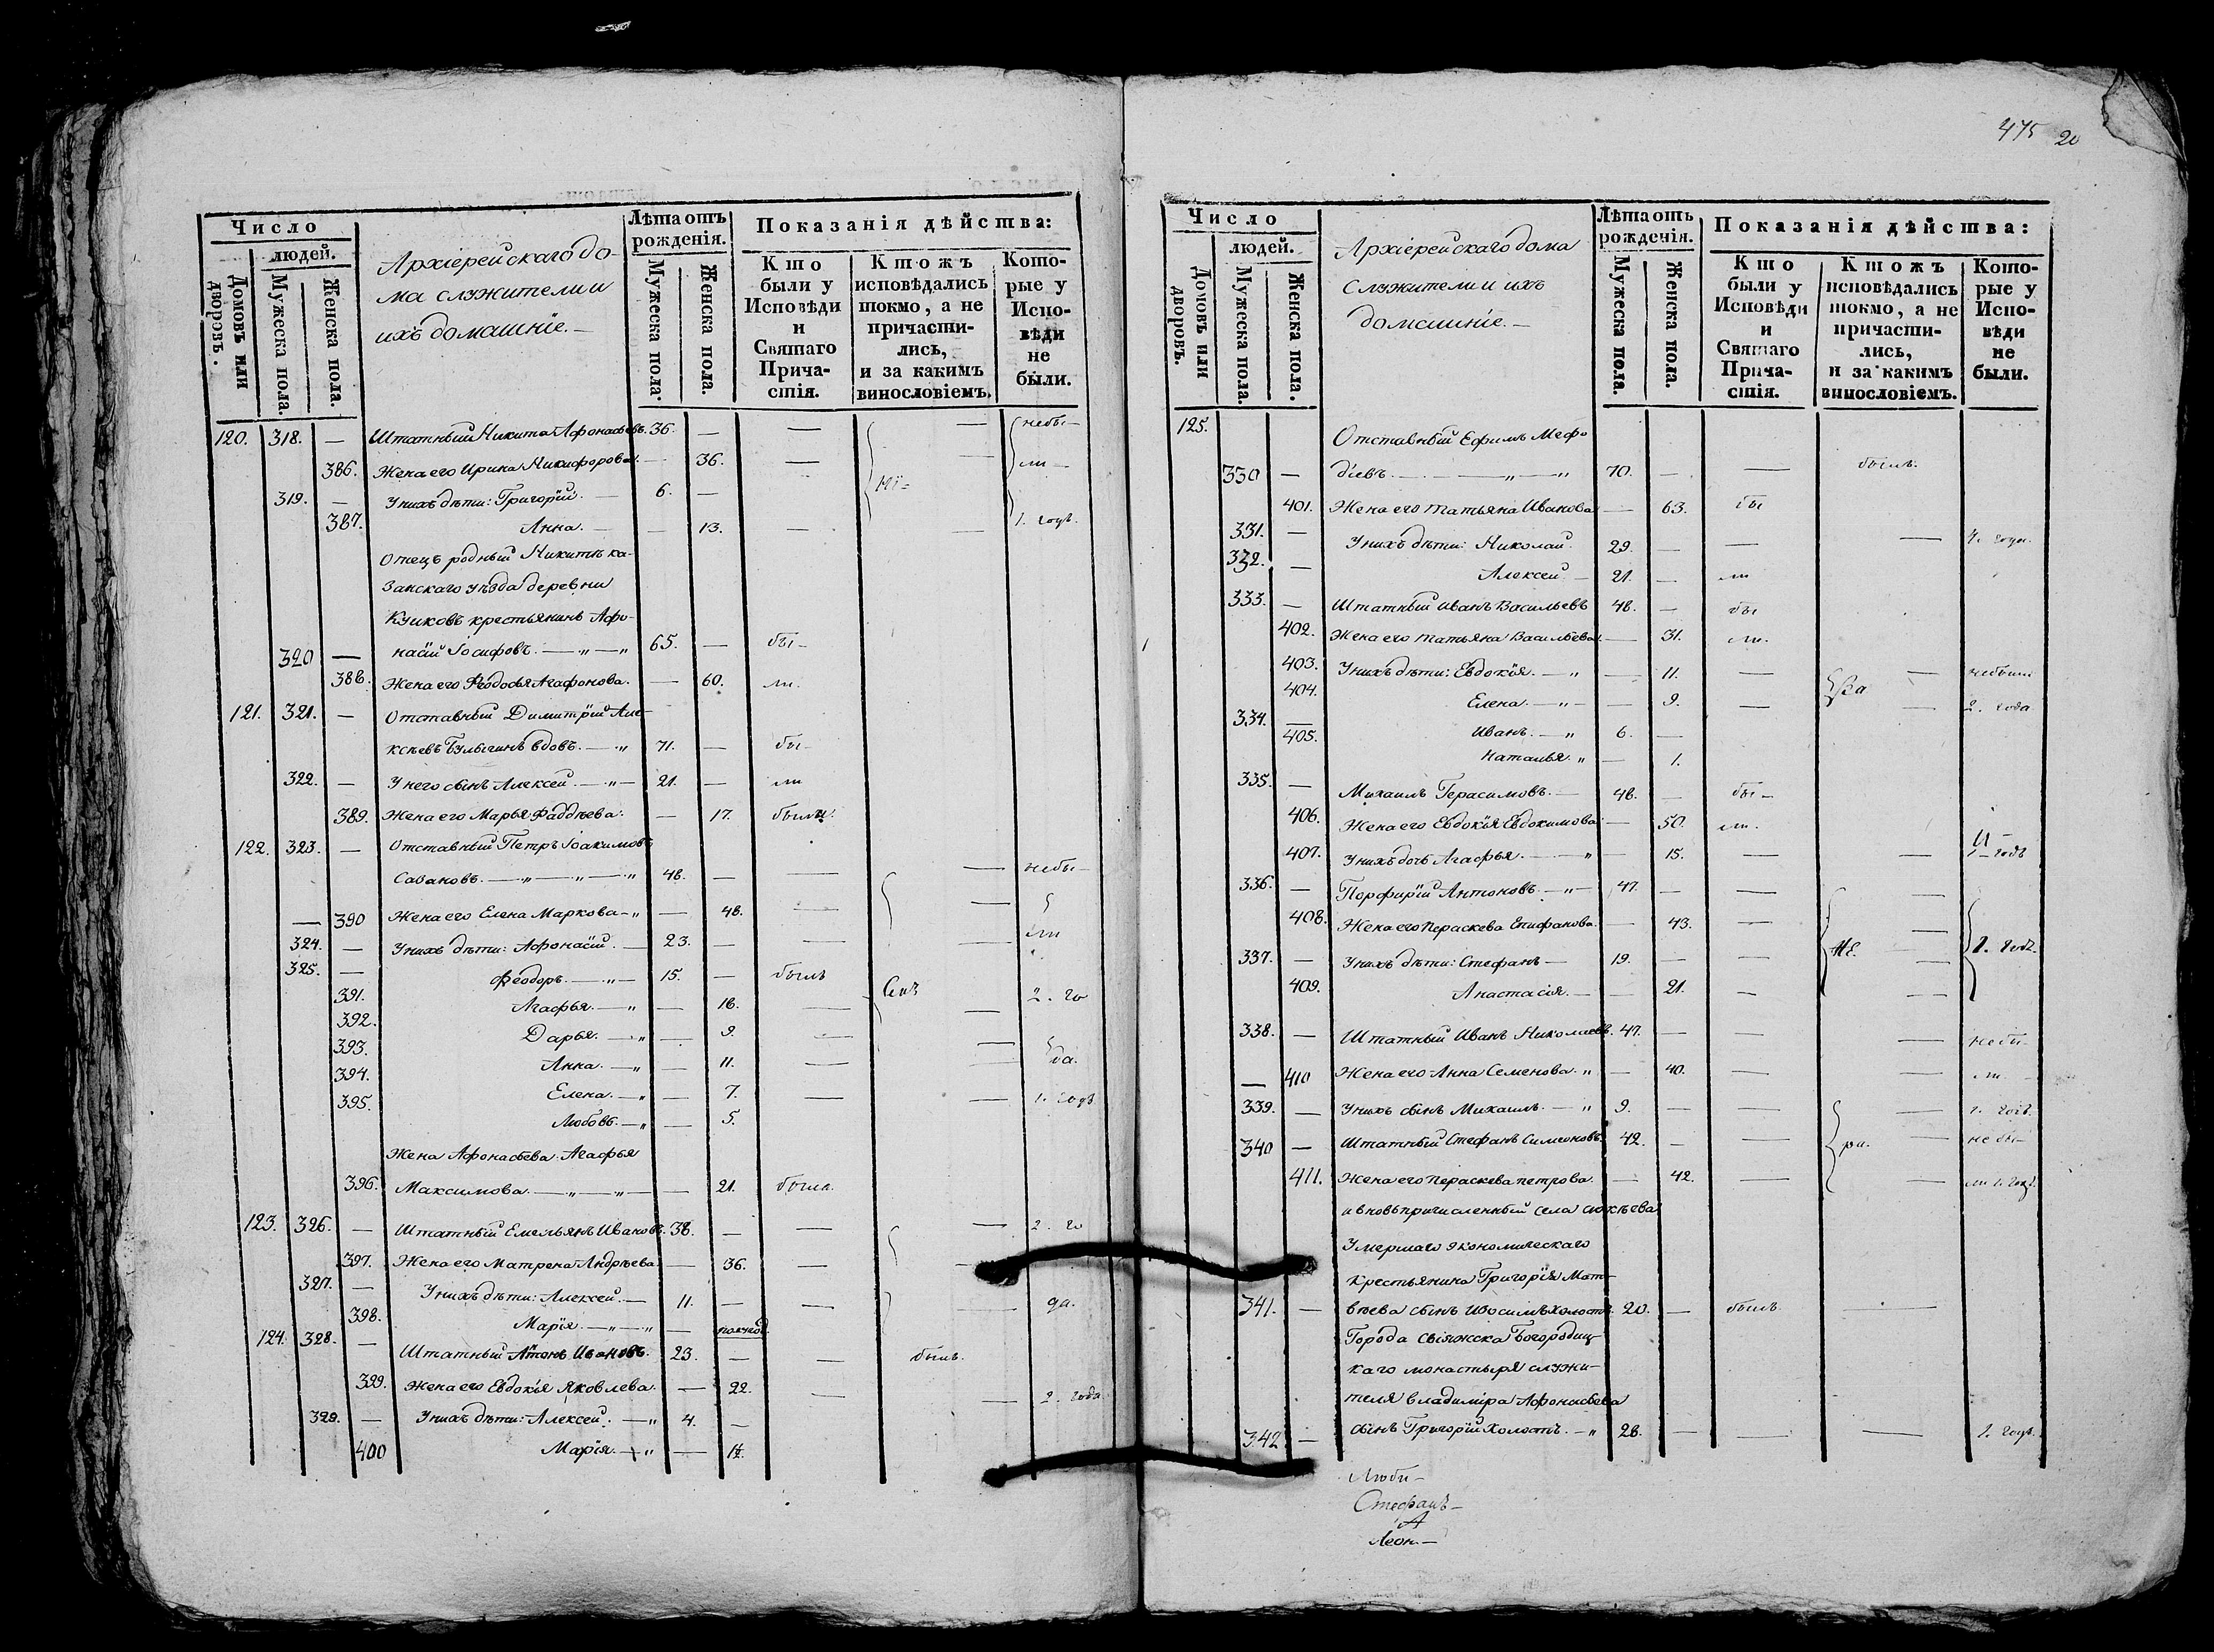 475 20
Число
людей.
Домовъ или дворовъ.
Мужеска пола.
Женска пола.
Архіерейскаго до-
ма служители и
ихъ домашніе. —
Лѣта отъ рожденія.
Мужеска пола.
Женска пола.
Показанія дѣйства:
Кто были у Исповѣди и Святаго Прича-стія.
Ктожъ исповѣдались токмо, а не причасти-лись, и за какимъ винословіемъ.
Кото-рые у Испо-вѣди не были.
120. 318. — Штатный Никита Афонасьевъ. 36. — — — небы-
386. Жена его Ирина Никифорова. — 36. — — ли —
319. — У нихъ дѣти: Григорій. — 6. —
387. Анна. — — 13. — — 1. годъ.
Отецъ родный Никитѣ ка-
занскаго уѣзда деревни
Куюковъ крестьянинъ Афо-
320 — насій Іосифовъ. — „ — „ 65. — бы-
388. Жена его Ѳеодосья Агафонова. — 60. ли.
121. 321. — Отставный Димитрій Але-
ксѣевъ Булыгинъ вдовъ. — „ 71. — бы-
322. — У него сынъ Алексей. — „ — 21. — ли
389. Жена его Марья Фаддѣева. — 17. были.
122. 323. — Отставный Петръ Іоакимовъ
Савановъ. — „ — „ — „ 48. — — — небы-
— 390 Жена его Елена Маркова — „ — 48. — —
324. — У нихъ дѣти: Афонасій. — 23. — — — ли
325. — Феодоръ. — „ — 15. — былъ
391. Агафья. — „ — 18. — 2. го
392. Дарья. — „ — 9. — —
393. Анна. — „ — 11. — — да.
394. Елена. — „ — 7. — — 1. годъ
395. Любовь. — „ — 5.
Жена Афонасьева Агафья
396. Максимова. — „ — „ — — 21. была.
123. 326. — Штатный Емельянъ Ивановъ. 38. — — — 2. го
397. Жена его Матрена Андрѣева. — 36. — —
327. — У нихъ дѣти: Алексей. — 11. — — — да.
398. Марія. — „ — „ —
124. 328. — Штатный Антонъ Ивановъ. 23. — — былъ.
399. Жена его Евдокія Яковлева. — 22. — — 2. года
329. — У нихъ дѣти: Алексей. — „ 4. —
400 Марія. — „ —
Число
людей.
Домовъ или дворовъ.
Мужеска пола.
Женска пола.
Архіерейскаго дома
служители и ихъ
домашніе. —
Лѣта отъ рожденія.
Мужеска пола.
Женска пола.
Показанія дѣйства:
Кто были у Исповѣди и Святаго Прича-стія.
Ктожъ исповѣдались токмо, а не причасти-лись, и за какимъ винословіемъ.
Кото-рые у Испо-вѣди не были.
125. Отставный Ефимъ Мефо
330 — діевъ. — — „ — „ 70. — — былъ.
401. Жена его Татьяна Иванова — 63. бы
331. — У нихъ дѣти: Николай. 29. — — — года.
332. — Алексей. — 21. — ли
333. — Штатный Иванъ Васильевъ 48. — бы
402. Жена его Татьяна Васильева. — 31. ли.
403. У нихъ дѣти: Евдокія. — „ — 11. — — небыли
404. Елена. — „ — — 9. — — 2. года
334. — Иванъ. — „ 6. —
405. Наталья. „ — 1.
335. — Михаилъ Герасимовъ. — 48. — бы-
406. Жена его Евдокія Евдокимова. — 50. ли.
407. У нихъ дочь Агафья. — „ — 15. — — 1 — годъ
336. — Порфирій Антоновъ. — „ — 47. — —
408. Жена его Параскева Епифанова. — 43. — —
337. — У нихъ дѣти: Стефанъ — 19. — — — 1. годъ.
409. Анастасія. — — 21. — —
338. — Штатный Иванъ Николаевъ. 47. — — — небы-
— 410 Жена его Анна Семенова. „ — 40. — — ли —
339. — У нихъ сынъ Михаилъ. — „ 9. — — — 1. годъ.
340 — Штатный Стефанъ Симеоновъ. 42. — — — не бы-
411. Жена его Параскева Петрова. — 42. — — ли 1. годъ.
и вновь причисленный села
умершаго экономическаго
крестьянина Григорія Мат-
341. — вѣева сынъ холостъ. 20. — былъ. —
Города Свіяжска Богородиц-
каго монастыря служи-
теля Владиміра Афонасьева
342 — сынъ Григорій холостъ. — „ 28. — — — 1. годъ.
Люби-
Стефанъ —
А
Леон. —